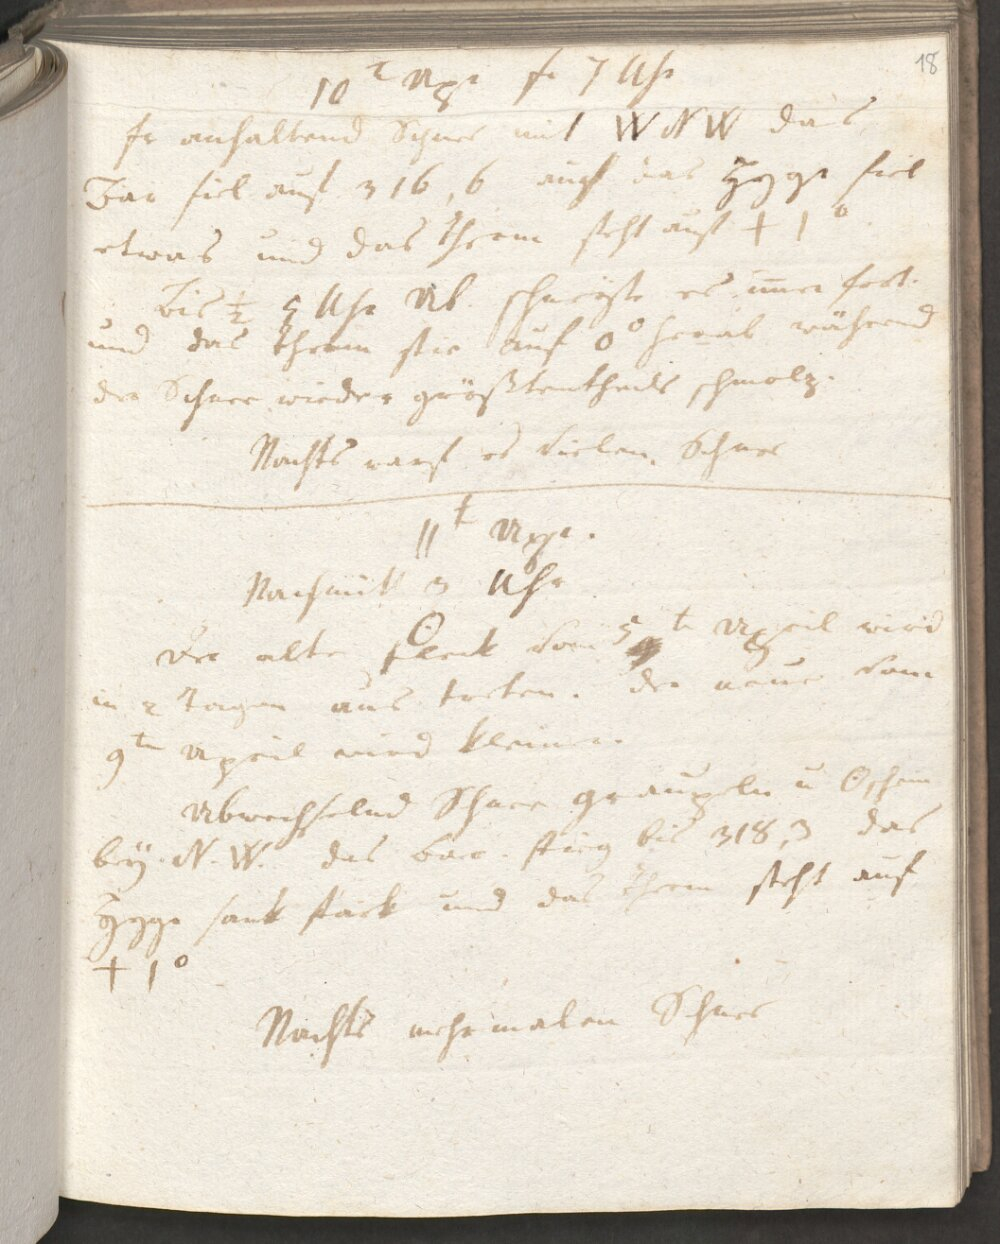 18
10t Apr fr 7 Uhr
fr anhaltend Schnee mit WNW das
Bar fiel auf 316,6 auch das Hygr fiel
etwas und das Therm steht auf + 1°
Bis ½ 5 Uhr Ab. schneyte es immer fort.
und das Therm fiel auf 0° herab während
der Schnee wieder größtentheils schmolz.
Nachts warf es vielen Schnee
11t Apr.
Nachmitt 3 Uhr
Der alte ʘ Fleck vom 5t April wird
in 2 Tagen aus treten. der neue vom
9tn April wird kleiner.
Abwechselnd Schnee graupeln u ʘschein
bey N. W. das Bar. stieg bis 318,3 das
Hygr sank stark und das Therm steht auf
+ 1°
Nachts mehrmalen Schnee